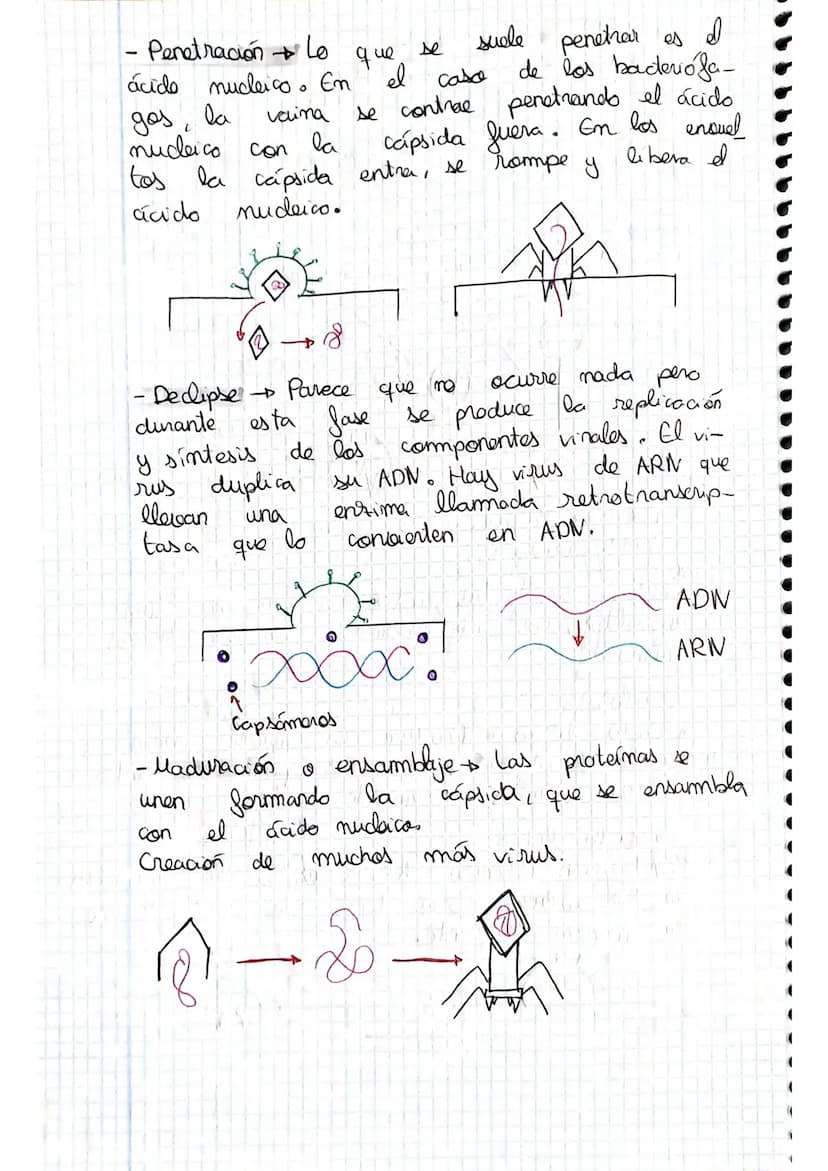 - Penetración → Lo que se suele penetrar es el
ácido nucleico. En el caso de los bacteriófa-
gos, la vaina se contrae penetrando el ácido
nucleico con la cápsida fuera. En los envuel
tos la cápsida entra, se rompe y libera el
ácido nucleico.
- De clipse → Parece que no ocurre nada pero
durante esta fase se produce la replicación
y síntesis de los componentes virales. El vi-
rus duplica su ADN. Hay virus de ARN que
llevan una enzima llamada retrotranscrip-
tasa que lo convierten en ADN.
ADN
ARN
Capsómeros
- Maduración o ensamblaje → Las proteínas se
unen formando la cápsida, que se ensambla
con el ácido nucleico.
Creación de muchos más virus.